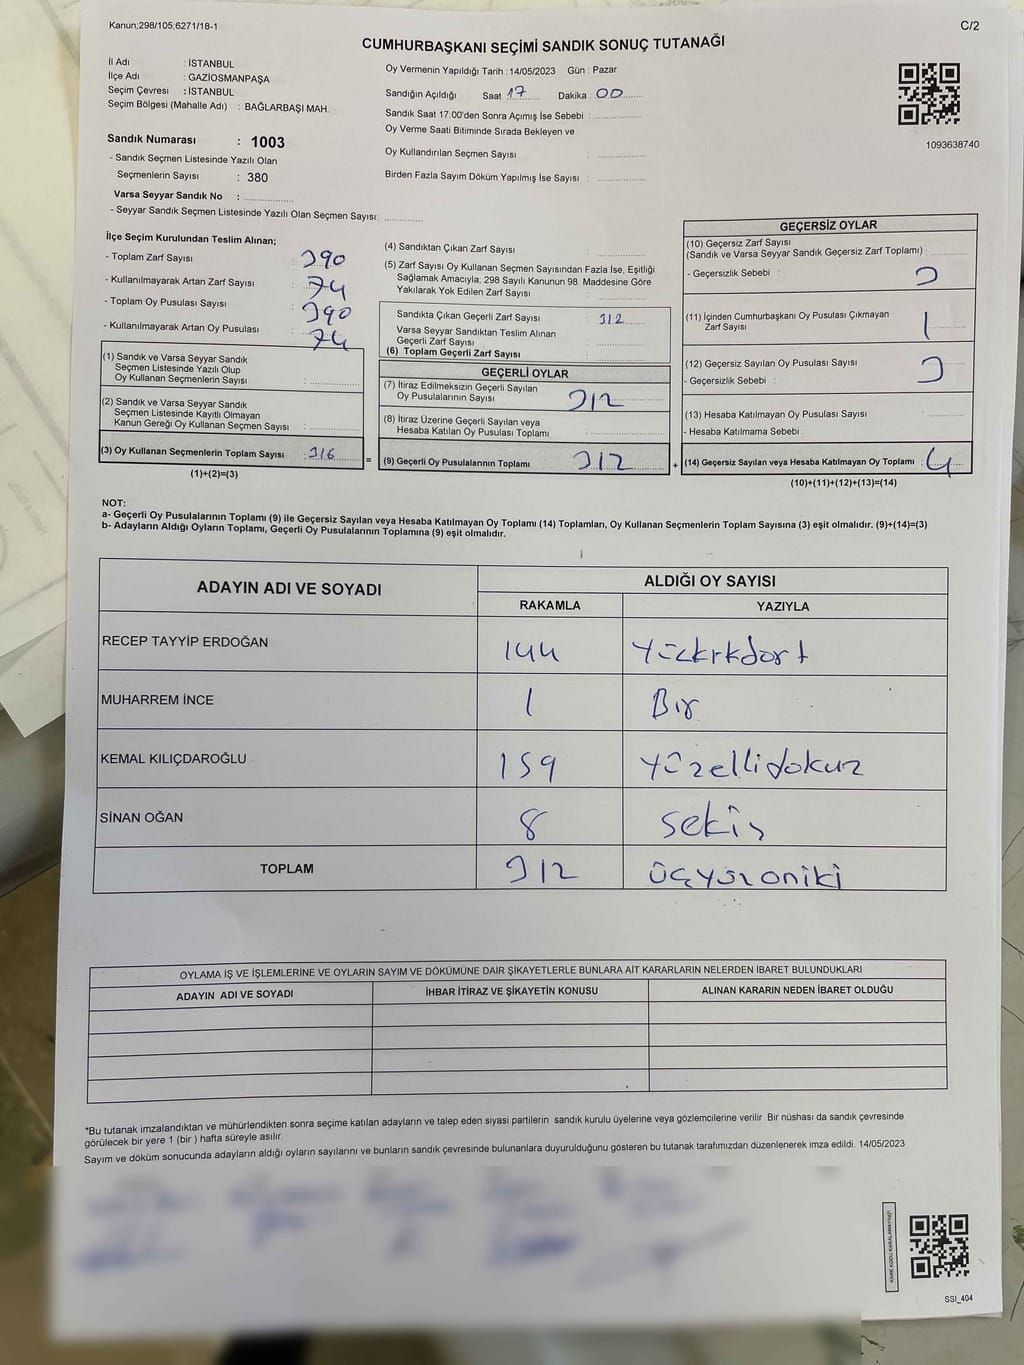 Kanun;298/105;6271/18-1
C/2
CUMHURBAŞKANI SEÇİMİ SANDIK SONUÇ TUTANAĞI
İl Adı : İSTANBUL
İlçe Adı : GAZİOSMANPAŞA
Seçim Çevresi : İSTANBUL
Seçim Bölgesi (Mahalle Adı) : BAĞLARBAŞI MAH.
Sandık Numarası : 1003
- Sandık Seçmen Listesinde Yazılı Olan
Seçmenlerin Sayısı : 380
Varsa Seyyar Sandık No : ................
- Seyyar Sandık Seçmen Listesinde Yazılı Olan Seçmen Sayısı: .............
Oy Vermenin Yapıldığı Tarih : 14/05/2023 Gün : Pazar
Sandığın Açıldığı Saat 17 Dakika : 00
Sandık Saat 17:00'den Sonra Açımış İse Sebebi : ................
Oy Verme Saati Bitiminde Sırada Bekleyen ve
Oy Kullandırılan Seçmen Sayısı : ................
Birden Fazla Sayım Döküm Yapılmış İse Sayısı : ................
1093638740
İlçe Seçim Kurulundan Teslim Alınan;
- Toplam Zarf Sayısı : 390
- Kullanılmayarak Artan Zarf Sayısı : 74
- Toplam Oy Pusulası Sayısı : 390
- Kullanılmayarak Artan Oy Pusulası : 74
(1) Sandık ve Varsa Seyyar Sandık
Seçmen Listesinde Yazılı Olup
Oy Kullanan Seçmenlerin Sayısı : ................
(2) Sandık ve Varsa Seyyar Sandık
Seçmen Listesinde Kayıtlı Olmayan
Kanun Gereği Oy Kullanan Seçmen Sayısı : ................
(3) Oy Kullanan Seçmenlerin Toplam Sayısı : 316
(1)+(2)=(3)
=
(4) Sandıktan Çıkan Zarf Sayısı : ................
(5) Zarf Sayısı Oy Kullanan Seçmen Sayısından Fazla İse, Eşitliği
Sağlamak Amacıyla, 298 Sayılı Kanunun 98. Maddesine Göre
Yakılarak Yok Edilen Zarf Sayısı : ................
Sandıkta Çıkan Geçerli Zarf Sayısı : 312
Varsa Seyyar Sandıktan Teslim Alınan
Geçerli Zarf Sayısı : ................
(6) Toplam Geçerli Zarf Sayısı : ................
GEÇERLİ OYLAR
(7) İtiraz Edilmeksizin Geçerli Sayılan
Oy Pusulalarının Sayısı : 312
(8) İtiraz Üzerine Geçerli Sayılan veya
Hesaba Katılan Oy Pusulası Toplamı : ................
(9) Geçerli Oy Pusulalarının Toplamı : 312
+
GEÇERSİZ OYLAR
(10) Geçersiz Zarf Sayısı
(Sandık ve Varsa Seyyar Sandık Geçersiz Zarf Toplamı) :
- Geçersizlik Sebebi : 3
(11) İçinden Cumhurbaşkanı Oy Pusulası Çıkmayan
Zarf Sayısı : 1
(12) Geçersiz Sayılan Oy Pusulası Sayısı :
- Geçersizlik Sebebi :
(13) Hesaba Katılmayan Oy Pusulası Sayısı : ................
- Hesaba Katılmama Sebebi :
(14) Geçersiz Sayılan veya Hesaba Katılmayan Oy Toplamı : 4
(10)+(11)+(12)+(13)=(14)
NOT:
a- Geçerli Oy Pusulalarının Toplamı (9) ile Geçersiz Sayılan veya Hesaba Katılmayan Oy Toplamı (14) Toplamları, Oy Kullanan Seçmenlerin Toplam Sayısına (3) eşit olmalıdır. (9)+(14)=(3)
b- Adayların Aldığı Oyların Toplamı, Geçerli Oy Pusulalarının Toplamına (9) eşit olmalıdır.
ADAYIN ADI VE SOYADI
ALDIĞI OY SAYISI
RAKAMLA YAZIYLA
RECEP TAYYİP ERDOĞAN 144 Yüzkrkdort
MUHARREM İNCE 1 Bır
KEMAL KILIÇDAROĞLU 159 Yüzellidokuz
SİNAN OĞAN 8 sekiz
TOPLAM 312 üçyüzoniki
OYLAMA İŞ VE İŞLEMLERİNE VE OYLARIN SAYIM VE DÖKÜMÜNE DAİR ŞİKAYETLERLE BUNLARA AİT KARARLARIN NELERDEN İBARET BULUNDUKLARI
ADAYIN ADI VE SOYADI İHBAR İTİRAZ VE ŞİKAYETİN KONUSU ALINAN KARARIN NEDEN İBARET OLDUĞU
*Bu tutanak imzalandıktan ve mühürlendikten sonra seçime katılan adayların ve talep eden siyasi partilerin sandık kurulu üyelerine veya gözlemcilerine verilir. Bir nüshası da sandık çevresinde
görülecek bir yere 1 (bir ) hafta süreyle asılır.
Sayım ve döküm sonucunda adayların aldığı oyların sayılarını ve bunların sandık çevresinde bulunanlara duyurulduğunu gösteren bu tutanak tarafımızdan düzenlenerek imza edildi. 14/05/2023
SSI_404